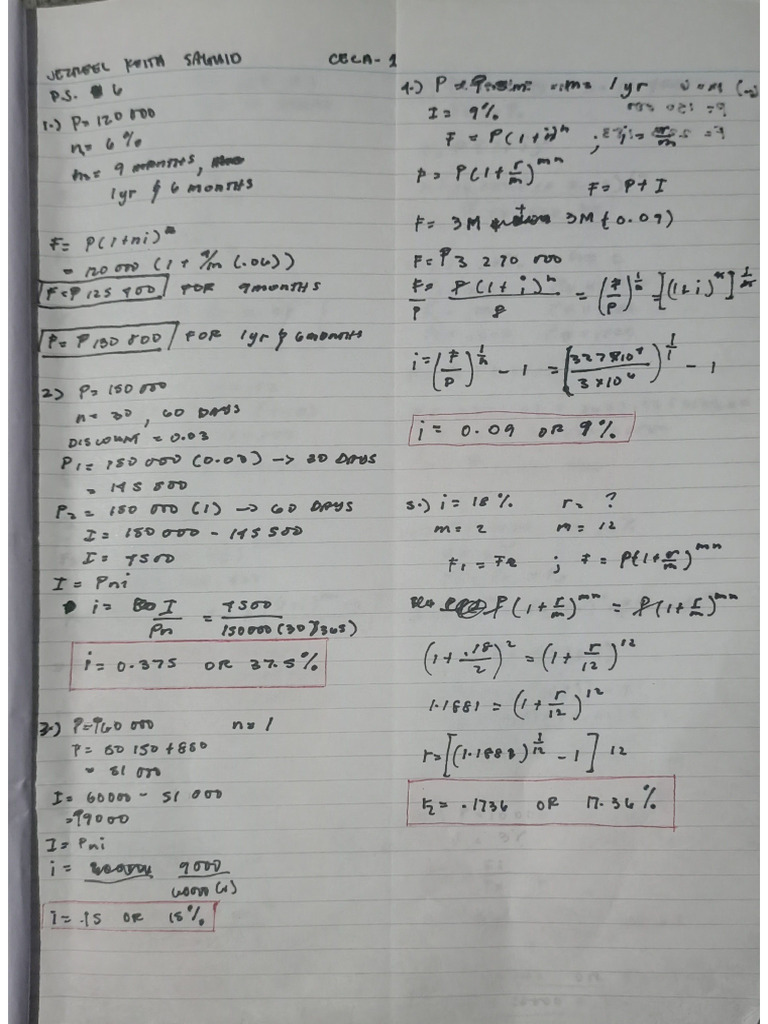 JEZREEL KEITH CECA-1
P.S. #6
1.) P= 120 000
n= 6%
m= 9 MONTHS,
1yr & 6 MONTHS
F= P(1+ni)
= 120 000 (1 + 9/12 (.06))
F=₱ 125 400 FOR 9MONTHS
P= ₱ 130 800 FOR 1yr & 6MONTHS
2.) P= 150 000
n= 30, 60 DAYS
DISCOUNT = 0.03
P₁= 150 000 (0.03) -> 30 DAYS
= 145 500
P₂= 150 000 (1) -> 60 DAYS
I= 150 000 - 145 500
I= 4500
I= Pni
i= I/Pn = 4500/150000(30)(365)
i= 0.375 OR 37.5%
3.) P=₱60 000 n= 1
P= 50 150 + 850
= 51 000
I= 60000 - 51 000
=99000
I= Pni
i= 9000/60000(1)
i= .15 OR 15%
4.) P = 1yr
I= 9%
F = P(1+i)ⁿ ;
F= P(1+r/m)^mn
F= P+I
F= 3M + 3M(0.09)
F=₱3 270 000
F/P = P(1+i)ⁿ/P = (F/P)^1/n = [(1+i)ⁿ]^1/n
i= (F/P)^1/n - 1 = [327x10⁴/3x10⁶]^1/1 - 1
i= 0.09 OR 9%
5.) i= 18% r= ?
m= 2 m= 12
F₁ = F₂ ; F= P(1+r/m)^mn
P(1+r/m)^mn = P(1+r/m)^mn
(1+.18/2)² = (1+r/12)¹²
1.1881 = (1+r/12)¹²
r=[(1.1888)^1/12 - 1] 12
r₂= .1736 OR 17.36%